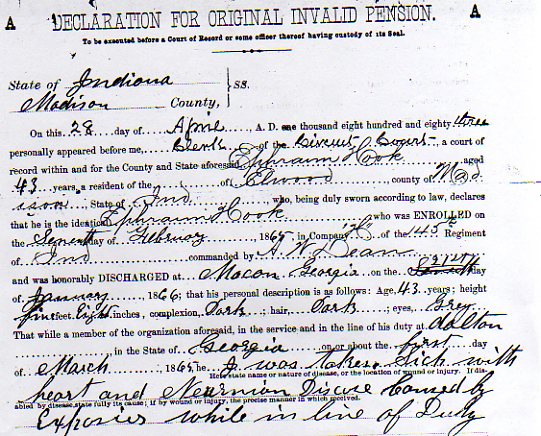 A DECLARATION FOR ORIGINAL INVALID PENSION. A
To be executed before a Court of Record or some officer thereof having custody of its Seal.
State of Indiana
Madison County, } SS.
On this 28 day of April, A. D. one thousand eight hundred and eighty three
personally appeared before me, Clerk of the Circuit Court a court of
record within and for the County and State aforesaid Ephraim Hook aged
43 years, a resident of the of Elwood county of Mad
ison State of Ind who, being duly sworn according to law, declares
that he is the identical Ephraim Hook who was ENROLLED on
the Seventh day of February 1865, in Company of the 145th Regiment
of Ind commanded by A. W. Dean
and was honorably DISCHARGED at Macon Georgia on the 21st day
of January 1866; that his personal description is as follows: Age, 43 years; height
five feet, Eight inches, complexion, Dark; hair, Dark; eyes, Grey
That while a member of the organization aforesaid, in the service and in the line of his duty at Dalton
in the State of Georgia on or about the first day
of March 1865, he was taken Sick with
Here state name or nature of disease, or the location of wound or injury. If dis-
heart and Disease Caused by
abled by disease, state fully its cause; if by wound or injury, the precise manner in which received.
Exposies while in line of Duty